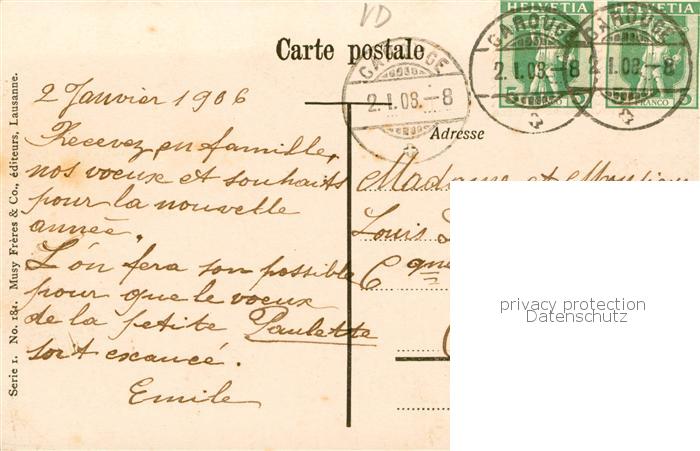 VD
HELVETIA HELVETIA
CAROUGE CAROUGE
2.I.08.-8 2.I.08.-8
5 FRANCO 5 FRANCO
Carte postale
CAROUGE
2.I.08.-8
2 Janvier 1906
Adresse
Recevez en famille,
nos voeux et souhaits
pour la nouvelle
année.
L'on fera son possible
pour que le voeux
de la petite Paulette
soit exaucé.
Emile
Madame et
Louis
Serie 1. No. 181. Musy Frères & Co., éditeurs, Lausanne.
privacy protection
Datenschutz